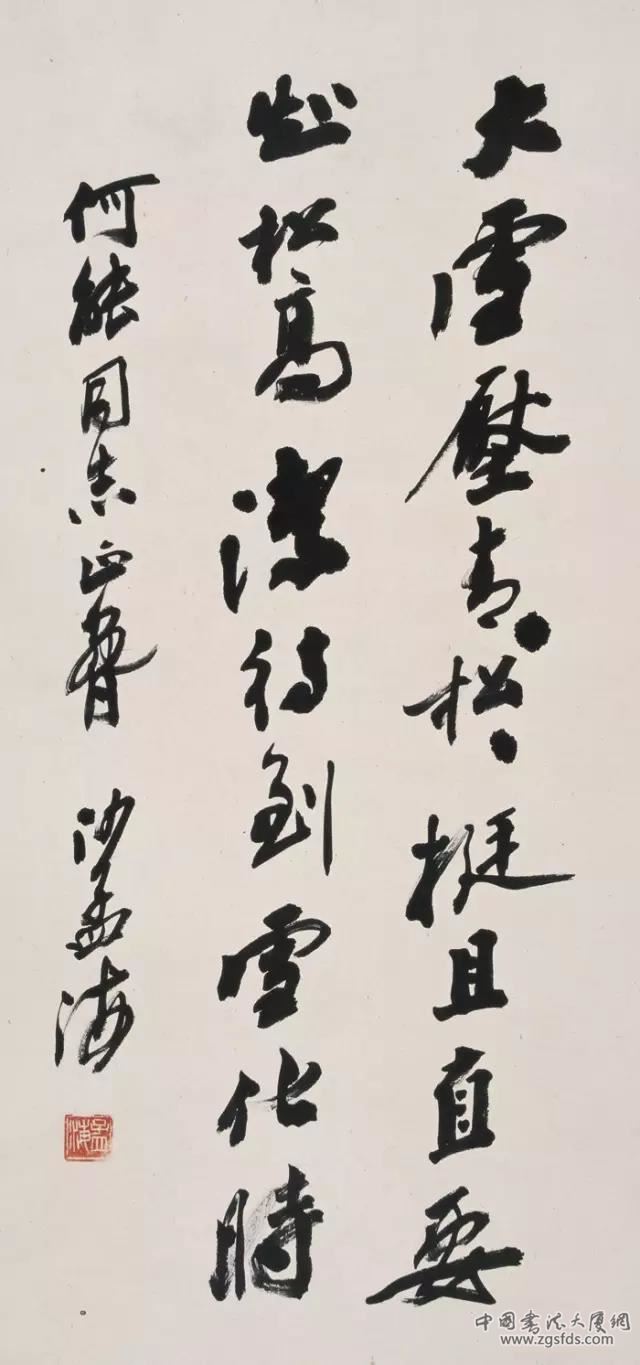 大雪壓青〻松〻挺且直要
知松高潔待到雪化時
何能同志正 沙孟海
孟海
中國書法大厦網
www.zgsfds.com